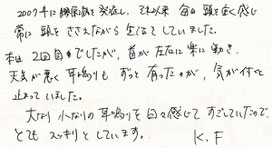 2009年に機能を発症し、それ以来 毎日 頭を重く感じ
常に 頭をささえながら 生活をしていました。
本日 2回目ですが、首が左右に楽に動き、
天気が悪く 耳鳴りも ずっと有ったのが、気が付くと
止まっていました。
大なり 小なりの耳鳴りを日々感じてすごしていたので
とても スッキリとしています。
K.F